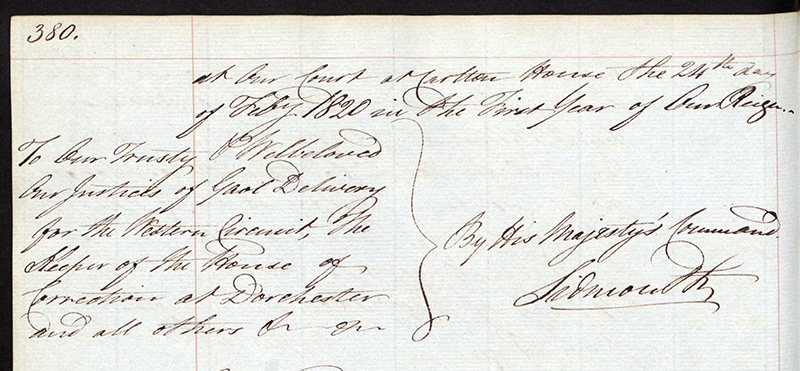 380.
at Our Court at Carlton House the 24th day
of Feby 1820 in the First Year of Our Reign.
To Our Trusty & Welbeloved
Our Justices of Gaol Delivery
for the Western Circuit, The
Keeper of the House of
Correction at Dorchester
and all others &c &c
By His Majesty's Command.
Sidmouth